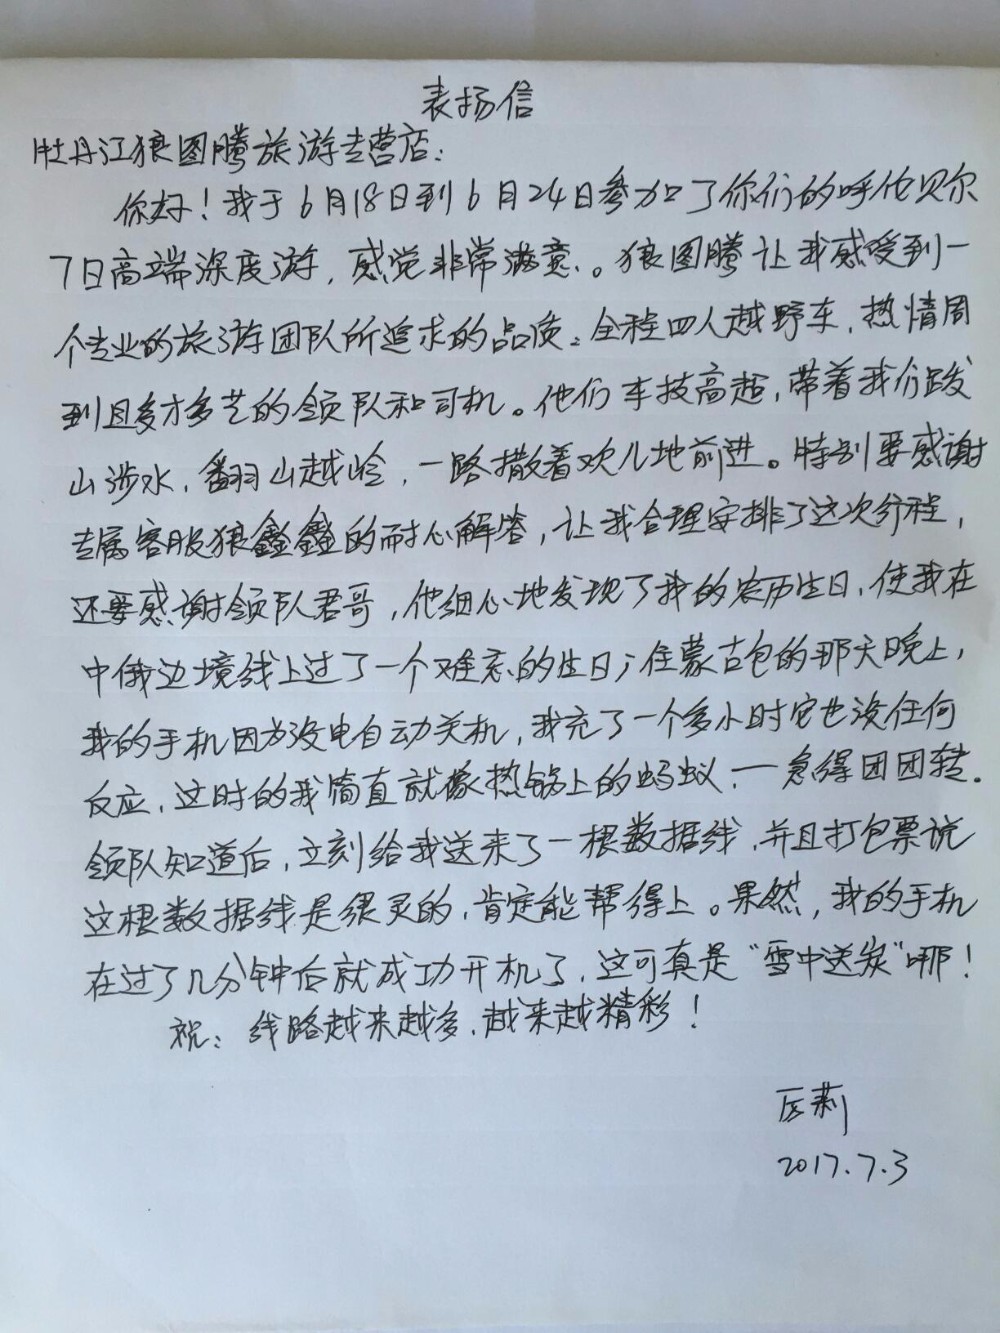 表扬信
牡丹江狼图腾旅游专营店：
你好！我于6月18日到6月24日参加了你们的呼伦贝尔
7日高端深度游，感觉非常满意。狼图腾让我感受到一
个专业的旅游团队所追求的品质。全程四人越野车，热情周
到且多才多艺的领队和司机。他们车技高超，带着我们跋
山涉水，翻山越岭，一路撒着欢儿地前进。特别要感谢
专属客服狼鑫鑫的耐心解答，让我合理安排了这次行程，
还要感谢领队君哥，他细心地发现了我的农历生日，使我在
中俄边境线上过了一个难忘的生日；住蒙古包的那天晚上，
我的手机因为没电自动关机，我充了一个多小时它也没任何
反应，这时的我简直就像热锅上的蚂蚁，一急得团团转。
领队知道后，立刻给我送来了一根数据线，并且打包票说
这根数据线是很灵的，肯定能帮得上。果然，我的手机
在过了几分钟后就成功开机了，这可真是“雪中送炭”哪！
祝：线路越来越多，越来越精彩！
莉
2017.7.3